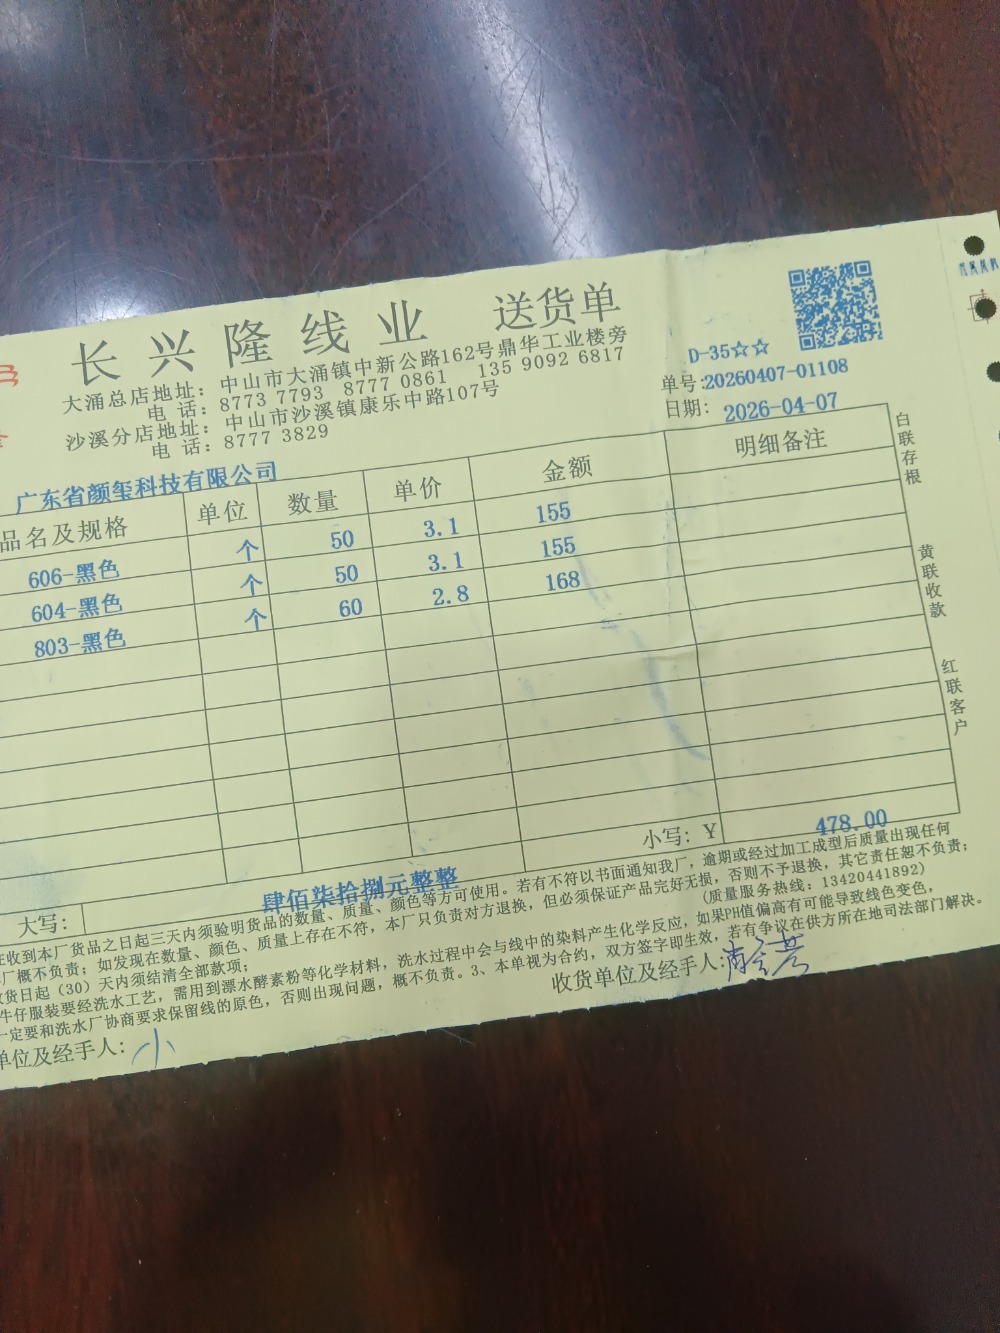 长兴隆线业 送货单
大涌总店地址：中山市大涌镇中新公路162号鼎华工业楼旁
电 话：8773 7793 8777 0861 135 9092 6817
沙溪分店地址：中山市沙溪镇康乐中路107号
电 话：8777 3829
D-35☆☆
单号:20260407-01108
日期： 2026-04-07
广东省颜玺科技有限公司
品名及规格 单位 数量 单价 金额 明细备注
606-黑色 个 50 3.1 155
604-黑色 个 50 3.1 155
803-黑色 个 60 2.8 168
小写：Y 478.00
大写： 肆佰柒拾捌元整整
收到本厂货品之日起三天内须验明货品的数量、质量、颜色等方可使用。若有不符以书面通知我厂，逾期或经过加工成型后质量出现任何
厂概不负责；如发现在数量、颜色、质量上存在不符，本厂只负责对方退换，但必须保证产品完好无损，否则不予退换，其它责任恕不负责；
货日起（30）天内须结清全部款项； (质量服务热线：13420441892)
牛仔服装要经洗水工艺，需用到漂水酵素粉等化学材料，洗水过程中会与线中的染料产生化学反应，如果PH值偏高有可能导致线色变色，
一定要和洗水厂协商要求保留线的原色，否则出现问题，概不负责。3、本单视为合约，双方签字即生效，若有争议在供方所在地司法部门解决。
单位及经手人： 小
收货单位及经手人:
白联存根
黄联收款
红联客户